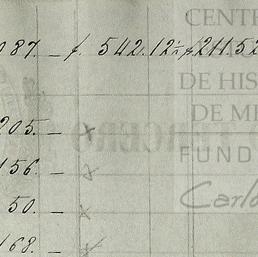 087. — f. 542.12½ f 211.52
205. — x
156. — x
50. — x
168. — x
CENTR
DE HIS
DE ME
FUND
Carlo